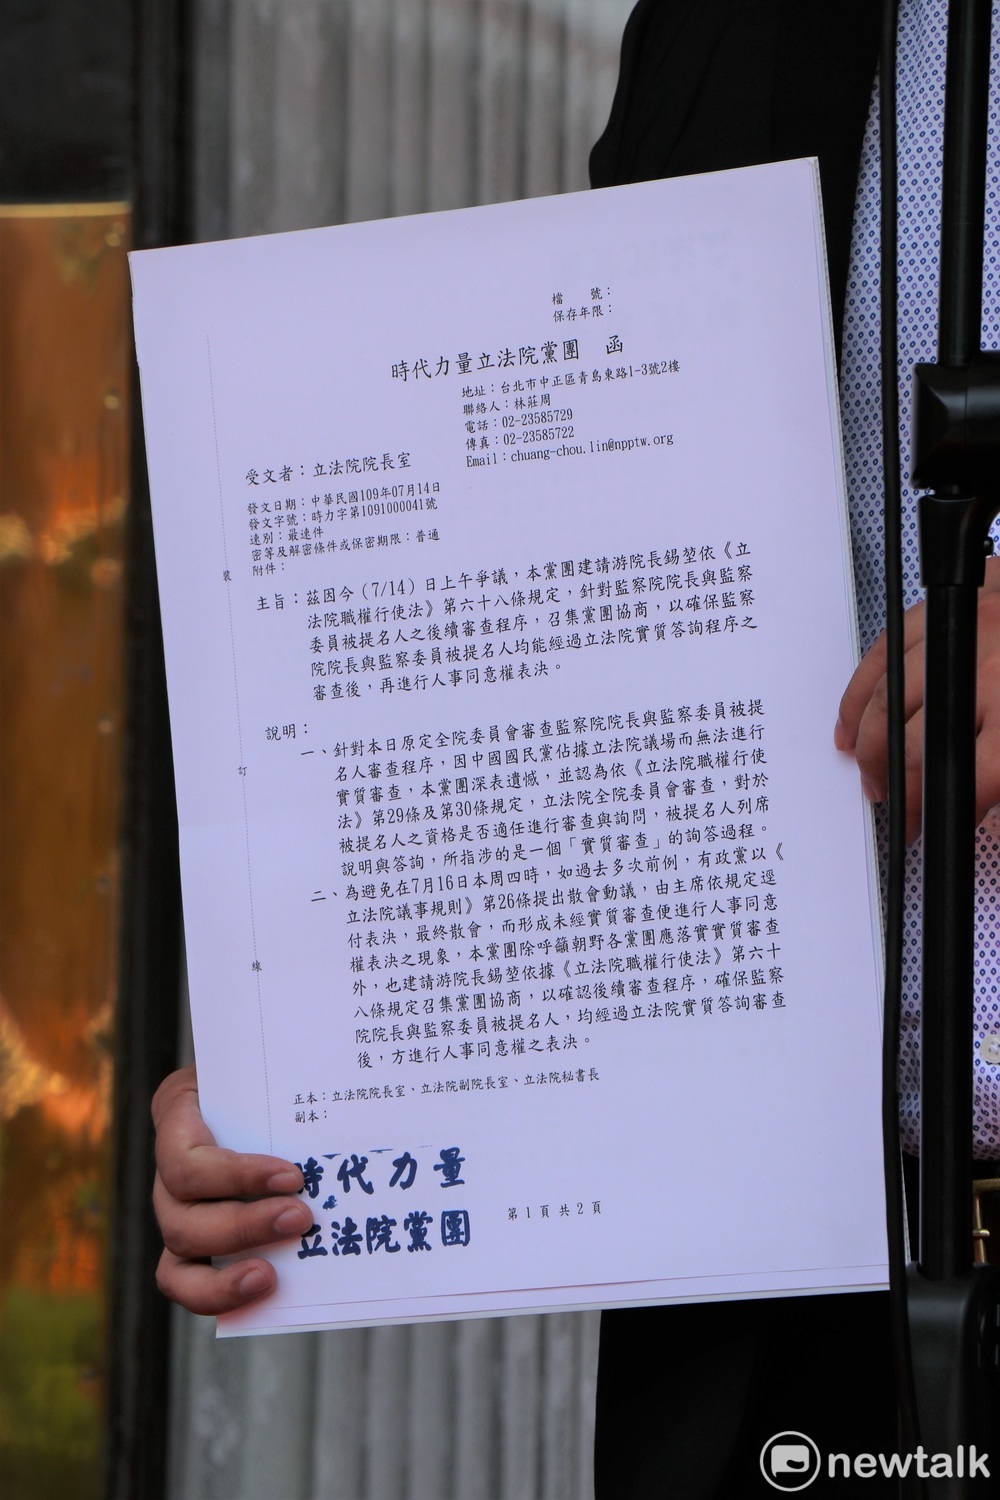 檔　　號：
保存年限：
時代力量立法院黨團　函
地址：台北市中正區青島東路1-3號2樓
聯絡人：林莊周
電話：02-23585729
傳真：02-23585722
Email：chuang-chou.lin@npptw.org
受文者：立法院院長室
發文日期：中華民國109年07月14日
發文字號：時力字第1091000041號
速別：最速件
密等及解密條件或保密期限：普通
附件：
主旨：茲因今（7/14）日上午爭議，本黨團建請游院長錫堃依《立
法院職權行使法》第六十八條規定，針對監察院院長與監察
委員被提名人之後續審查程序，召集黨團協商，以確保監察
院院長與監察委員被提名人均能經過立法院實質答詢程序之
審查後，再進行人事同意權表決。
說明：
一、針對本日原定全院委員會審查監察院院長與監察委員被提
名人審查程序，因中國國民黨佔據立法院議場而無法進行
實質審查，本黨團深表遺憾，並認為依《立法院職權行使
法》第29條及第30條規定，立法院全院委員會審查，對於
被提名人之資格是否適任進行審查與詢問，被提名人列席
說明與答詢，所指涉的是一個「實質審查」的詢答過程。
二、為避免在7月16日本周四時，如過去多次前例，有政黨以《
立法院議事規則》第26條提出散會動議，由主席依規定逕
付表決，最終散會，而形成未經實質審查便進行人事同意
權表決之現象，本黨團除呼籲朝野各黨團應落實實質審查
外，也建請游院長錫堃依據《立法院職權行使法》第六十
八條規定召集黨團協商，以確認後續審查程序，確保監察
院院長與監察委員被提名人，均經過立法院實質答詢審查
後，方進行人事同意權之表決。
正本：立法院院長室、立法院副院長室、立法院秘書長
副本：
時代力量
立法院黨團
第 1 頁 共 2 頁
裝
訂
線
newtalk